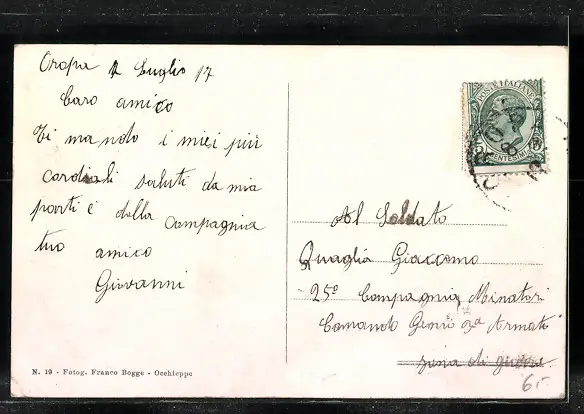 Oropa 1 Luglio 17
Caro amico
Ti mando i miei più
cordiali saluti da mia
parti e della compagnia
tuo amico
Giovanni
N. 19 - Fotog. Franco Bogge - Occhieppo
POSTE ITALIANE
CENTESIMI
Al Soldato
Quaglia Giaccomo
25° Compagnia Minatori
Comando Genio 2a Armata
zona di guerra
6.-